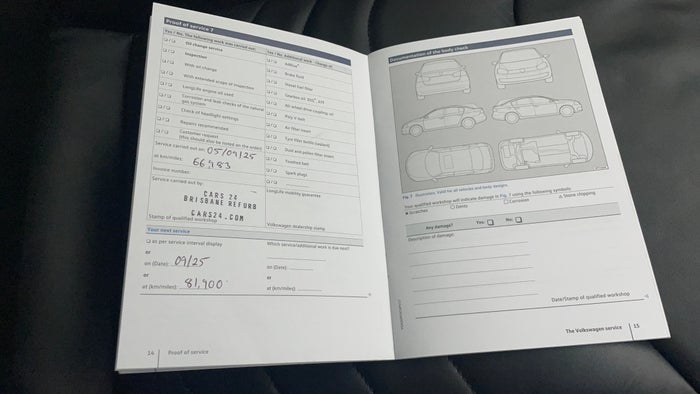 Proof of service 7
Yes / No: The following work was carried out:
Oil change service
Inspection
With oil change
With extended scope of inspection
LongLife engine oil used
Corrosion and leak checks of the natural
gas system
Check of headlight settings
Repairs recommended
Customer request
(this should also be noted on the order)
Service carried out on: 05/04/25
at km/miles: 66,483
Invoice number:
Service carried out by:
CARS 24
BRISBANE REFURB
CARS24.COM
Stamp of qualified workshop
Yes / No: Additional work - Change of:
AdBlue®
Brake fluid
Diesel fuel filter
Gearbox oil: DSG®, ATF
All-wheel drive coupling: oil
Poly V-belt
Air filter insert
Tyre filler bottle (sealant)
Dust and pollen filter insert
Toothed belt
Spark plugs
LongLife mobility guarantee
Volkswagen dealership stamp
Your next service
as per service interval display
or
on (Date): 09/25
or
at (km/miles): 81,400
Which service/additional work is due next?
on (Date)
or
at (km/miles)
14 Proof of service
Documentation of the body check
Fig. 7 Illustration. Valid for all vehicles and body designs
Your qualified workshop will indicate damage in Fig. 7 using the following symbols
Scratches Dents Corrosion Stone chipping
Any damage? Yes: No:
Description of damage:
Date/Stamp of qualified workshop
The Volkswagen service 15